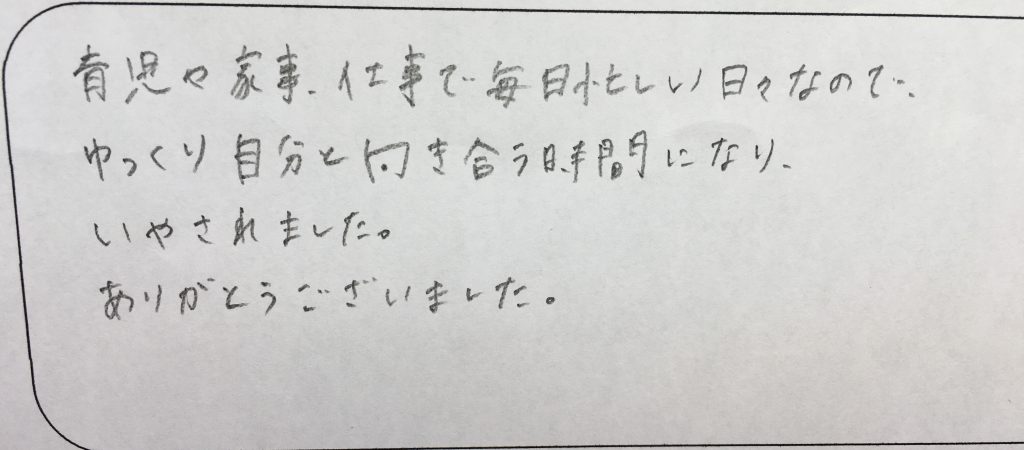 育児や家事、仕事で毎日忙しい日々なので、
ゆっくり自分と向き合う時間になり、
いやされました。
ありがとうございました。